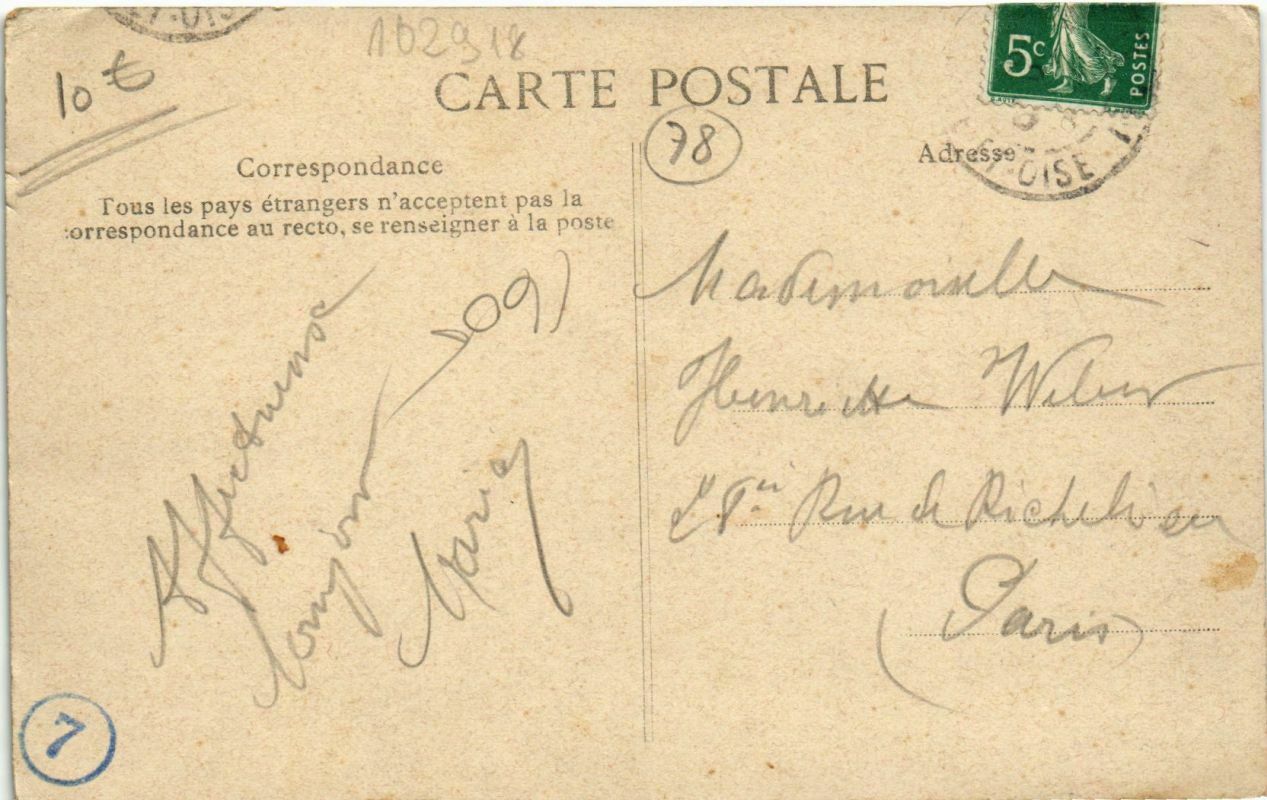 102918
10 €
CARTE POSTALE
5c
POSTES
78
Correspondance
Adresse
T-OISE
Tous les pays étrangers n'acceptent pas la
correspondance au recto, se renseigner à la poste
Affectueuse
Marie
Mademoiselle
Henriette
Rue de Richelieu
Paris
7